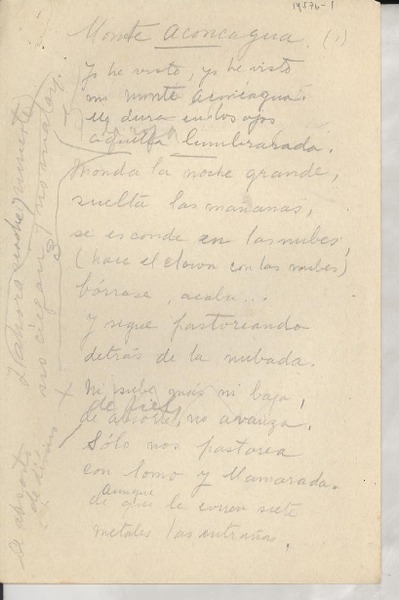 19576-1
Monte Aconcagua. (1)
Yo he visto, yo he visto
mi monte Aconcagua.
Me dura en los ojos
aquella lumbrarada.
Ronda la noche grande,
suelta las mañanas,
se esconde en las nubes,
(hace el clown con las nubes)
bórrase, acaba...
y sigue pastoreando
detrás de la nubada.
Ni sube más ni baja,
de fiel
de absorto, no avanza.
Sólo nos pastorea
con lomo y llamarada.
Aunque
de que le corren siete
metales las entrañas.